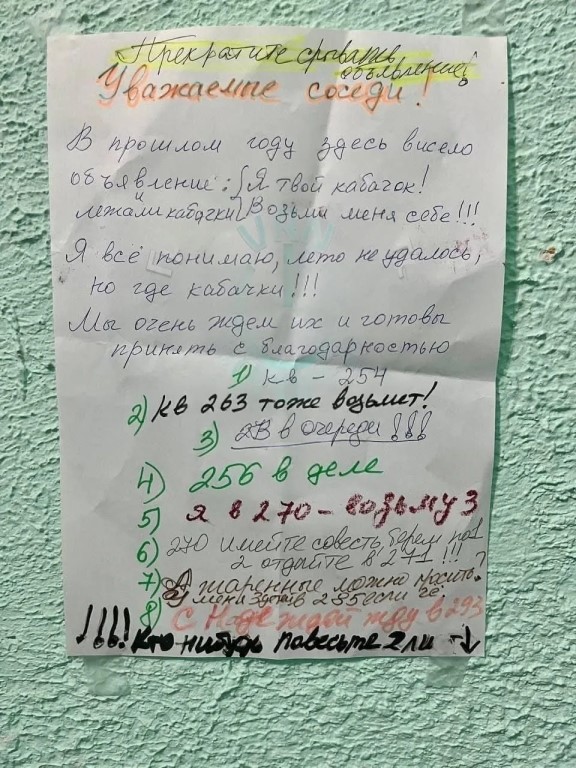 Прекратите срывать
объявление!
Уважаемые соседи!
В прошлом году здесь висело
объявление: Я твой кабачок!
и лежали кабачки Возьми меня себе!!!
Я всё понимаю, лето не удалось,
но где кабачки!!!
Мы очень ждем их и готовы
принять с благодарностью
1) кв - 254
2) кв 263 тоже возьмет!
3) 2В в очереди!!!
4) 256 в деле
5) я в 270 - возьму 3
6) 270 имейте совесть берем по 1
2 отдайте в 271!!!
7) А жаренные можно просить?
у меня здоров 295 если че
8) С Надеждой жду в 293
!!!! Кто нибудь повесьте 2 ли →